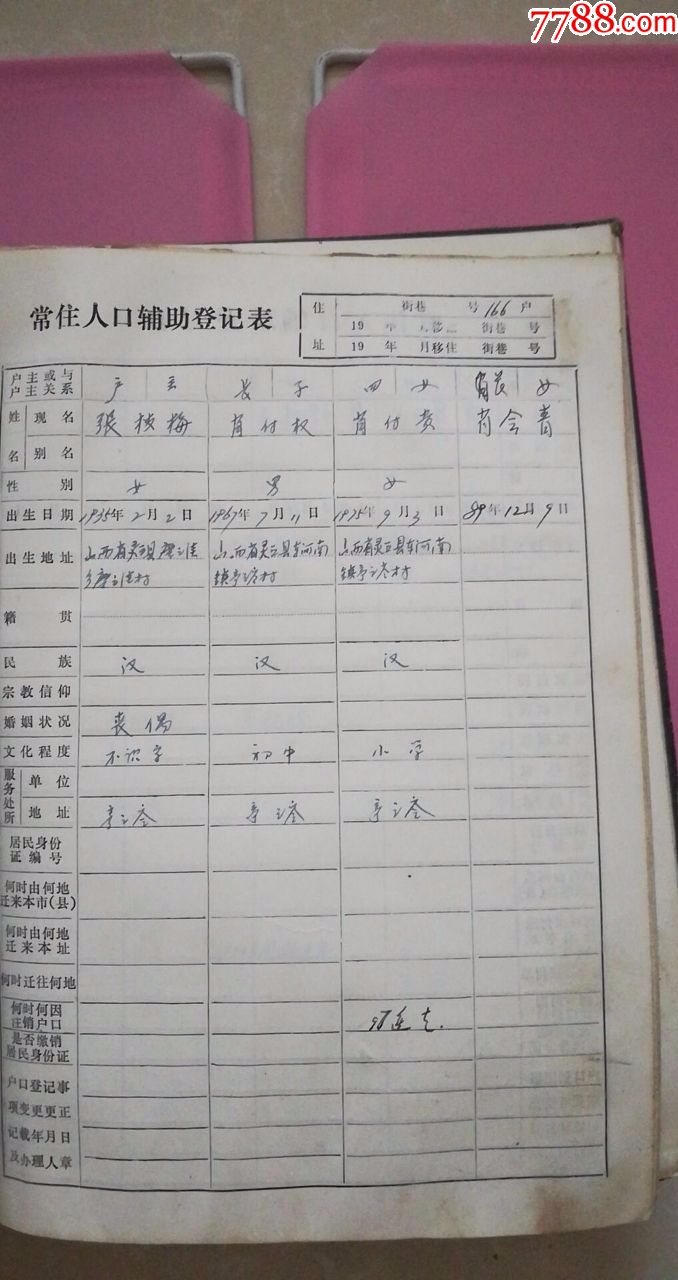 7788.com
常住人口辅助登记表
住 街巷 号 166 户
19 年 月移住 街巷 号
址 19 年 月移住 街巷 号
户主或与户主关系 户主 长子 四女 长女
姓 现名 張桢梅 肖付权 肖付贵 肖会青
名 别名
性别 女 男 女
出生日期 1935年2月2日 1967年7月11日 1975年9月3日 89年12月9日
出生地址 山西省灵 山西省灵丘县东河南 山西省灵丘县东河南
镇 村 镇 村
籍贯
民族 汉 汉 汉
宗教信仰
婚姻状况 丧偶
文化程度 不识字 初中 小学
服务处所 单位
地址
居民身份
证编号
何时由何地
迁来本市(县)
何时由何地
迁来本址
何时迁往何地
何时何因
注销户口 98迁走.
是否缴销
居民身份证
户口登记事
项变更更正
记载年月日
及办理人章